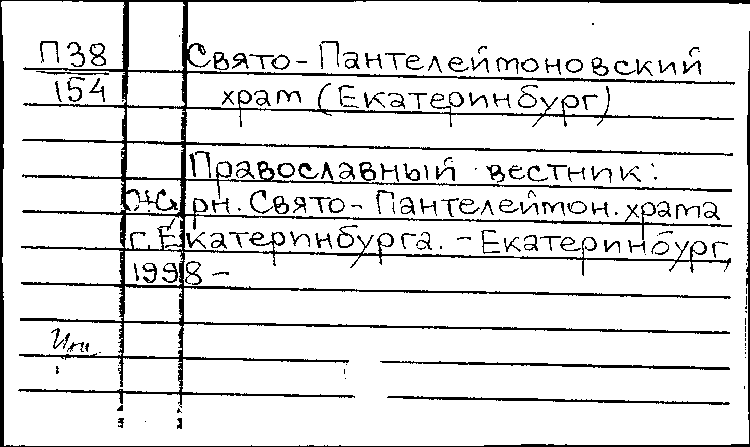 П38 Свято-Пантелеймоновский
154 храм (Екатеринбург)
Православный вестник:
Журн. Свято-Пантелеймон. храма
г. Екатеринбурга. - Екатеринбург,
1998-